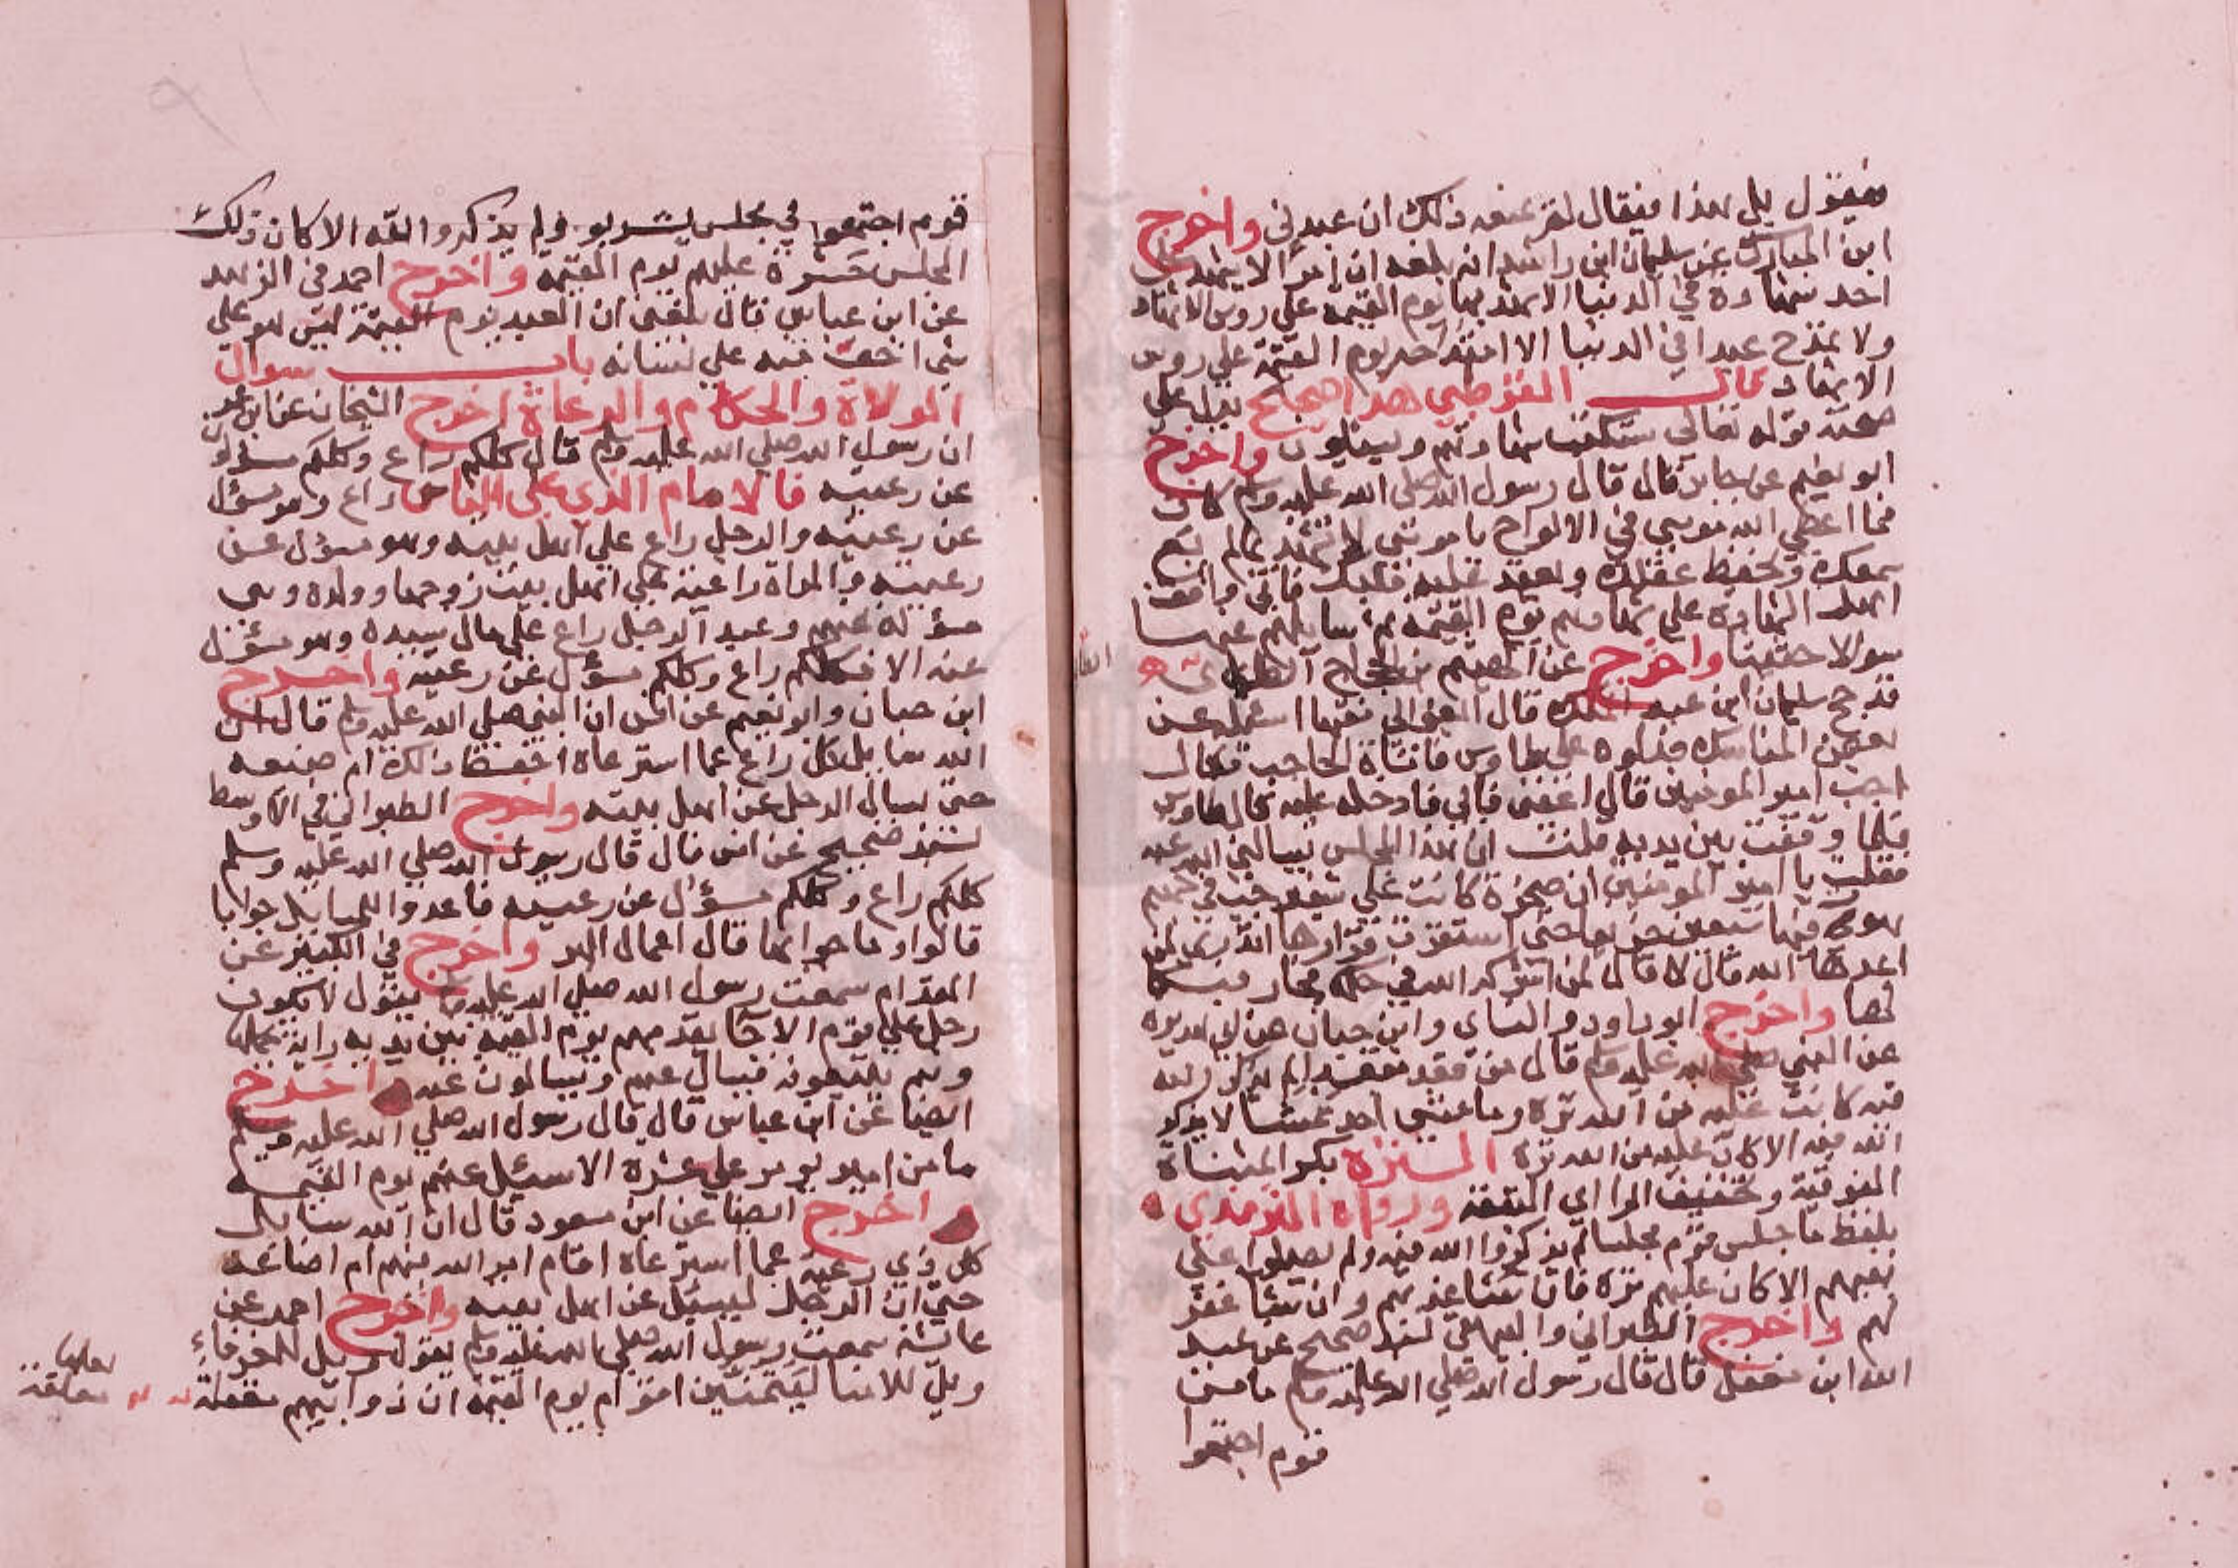 فيقول بلي هذا فيقال لقد عنه ذلك ان عبدني واخرج
ابن المبارك عن سليمان ابن راشد انه بلغه ان امرأ لا يشهد على
احد شهادة في الدنيا الا شهد بها يوم القيمة علي روس الاشهاد
ولا يمدح عبدا في الدنيا الا امتدحه يوم القيمة علي روس
الاشهاد قال القرطبي هذا صحيح يدل علي
صحته قوله تعالي ستكتب شهادتهم ويسئلون واخرج
ابو نعيم عن جابر قال قال رسول الله صلى الله عليه وسلم كان
فيما اعطي الله موسي في الالواح يا موسي لا تشهد بما لم يع
سمعك ويحفظ عقلك ويعقد عليه قلبك فاني واقف
اهل الشهادة علي شهادتهم يوم القيمة ثم سايلهم عنها
سوالا حثيثا واخرج عن الهيثم بن الحجاج الطائي
قد حج سليمان ابن عبد الملك قال ابغوا الي فقيها اسئله عن
بعض المناسك فدلوه علي طاوس فاتاه الحاجب فقال
اجب امير المومنين قال اعفني فابي فادخله عليه قال طاوس
فلما وقفت بين يديه قلت ان هذا المجلس يسالني الله عنه
فقلت يا امير المومنين ان صخرة كانت علي شفير جب في جهنم
هوت فيها سبعين خريفا حتي استقرت قرارها اتدري لمن
اعدها الله قال لا قال لمن اشركه الله في حكمه فجار فبكا
لها واخرج ابو داود والنساي وابن حبان عن ابي هريرة
عن النبي صلي الله عليه وسلم قال من قعد مقعدا لم يذكر الله
فيه كانت عليه من الله ترة وما مشي احد ممشا لا يذكر
الله فيه الا كان عليه من الله ترة الترة بكسر المثناة
الفوقية وتخفيف الرا اي النقص ورواه الترمذي
بلفظ ما جلس قوم مجلسا لم يذكروا الله فيه ولم يصلوا علي
نبيهم الا كان عليهم ترة فان شا عذبهم وان شا غفر
لهم واخرج الطبراني والبيهقي بسند صحيح عن عبد
الله ابن مغفل قال قال رسول الله صلي الله عليه وسلم ما من
قوم اجتمعوا
قوم اجتمعوا في مجلس يتفرقوا ولم يذكروا الله الا كان ذلك
المجلس حسرة عليهم يوم القيمة واخرج احمد في الزهد
عن ابن عباس قال بلغني ان العبد يوم القيمة ليس هو علي
شي اخف منه علي لسانه باب سوال
الولاة والحكام والرعاة اخرج الشيخان عن ابن عمر
ان رسول الله صلي الله عليه وسلم قال كلكم راع وكلكم مسؤل
عن رعيته فالامام الذي على الناس راع وهو مسؤل
عن رعيته والرجل راع علي اهل بيته وهو مسؤل عن
رعيته والمراة راعية علي اهل بيت زوجها وولده وهي
مسؤلة عنهم وعبد الرجل راع علي مال سيده وهو مسؤل
عنه الا فكلكم راع وكلكم مسؤل عن رعيته واخرج
ابن حبان وابو نعيم عن انس ان النبي صلي الله عليه وسلم قال ان
الله سايل كل راع عما استرعاه احفظ ذلك ام ضيعه
حتي يسال الرجل عن اهل بيته واخرج الطبراني في الاوسط
بسند صحيح عن انس قال قال رسول الله صلي الله عليه وسلم
كلكم راع وكلكم مسؤل عن رعيته فاعدوا للمسايل جوابا
قالوا وما جوابها قال اعمال البر واخرج في الكبير عن
المقدام سمعت رسول الله صلي الله عليه وسلم يقول لا يكون
رجل علي قوم الا جا يقدمهم يوم القيمة بين يديه راية يحملها
وهم يتبعونه فيسال عنهم ويسالون عنه واخرج
ايضا عن ابن عباس قال قال رسول الله صلي الله عليه وسلم
ما من امير يومر علي عشرة الا سئل عنهم يوم القيمة
واخرج ايضا عن ابن مسعود قال ان الله سايل
كل ذي رعية عما استرعاه اقام امر الله فيهم ام اضاعه
حتي ان الرجل ليسئل عن اهل بيته واخرج احمد عن
عائشة سمعت رسول الله صلي الله عليه وسلم يقول ويل للعرفاء
ويل للامنا ليتمنين اقوام يوم القيمة ان ذوائبهم معلقة